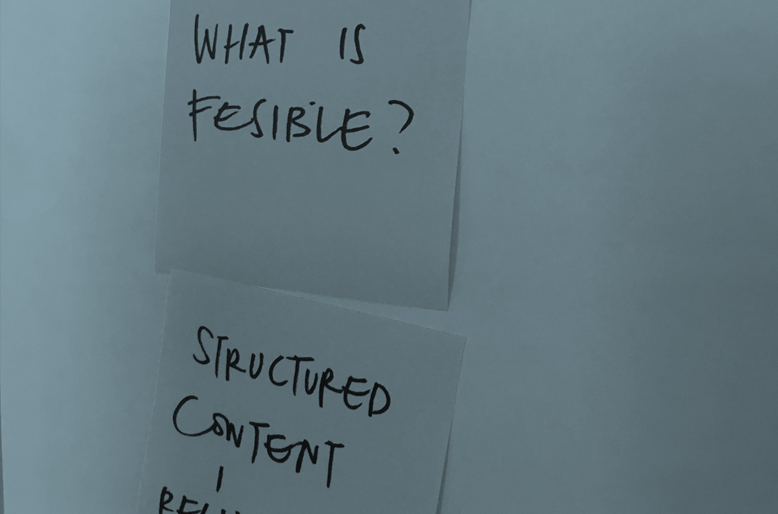 WHAT IS
FESIBLE?
STRUCTURED
CONTENT